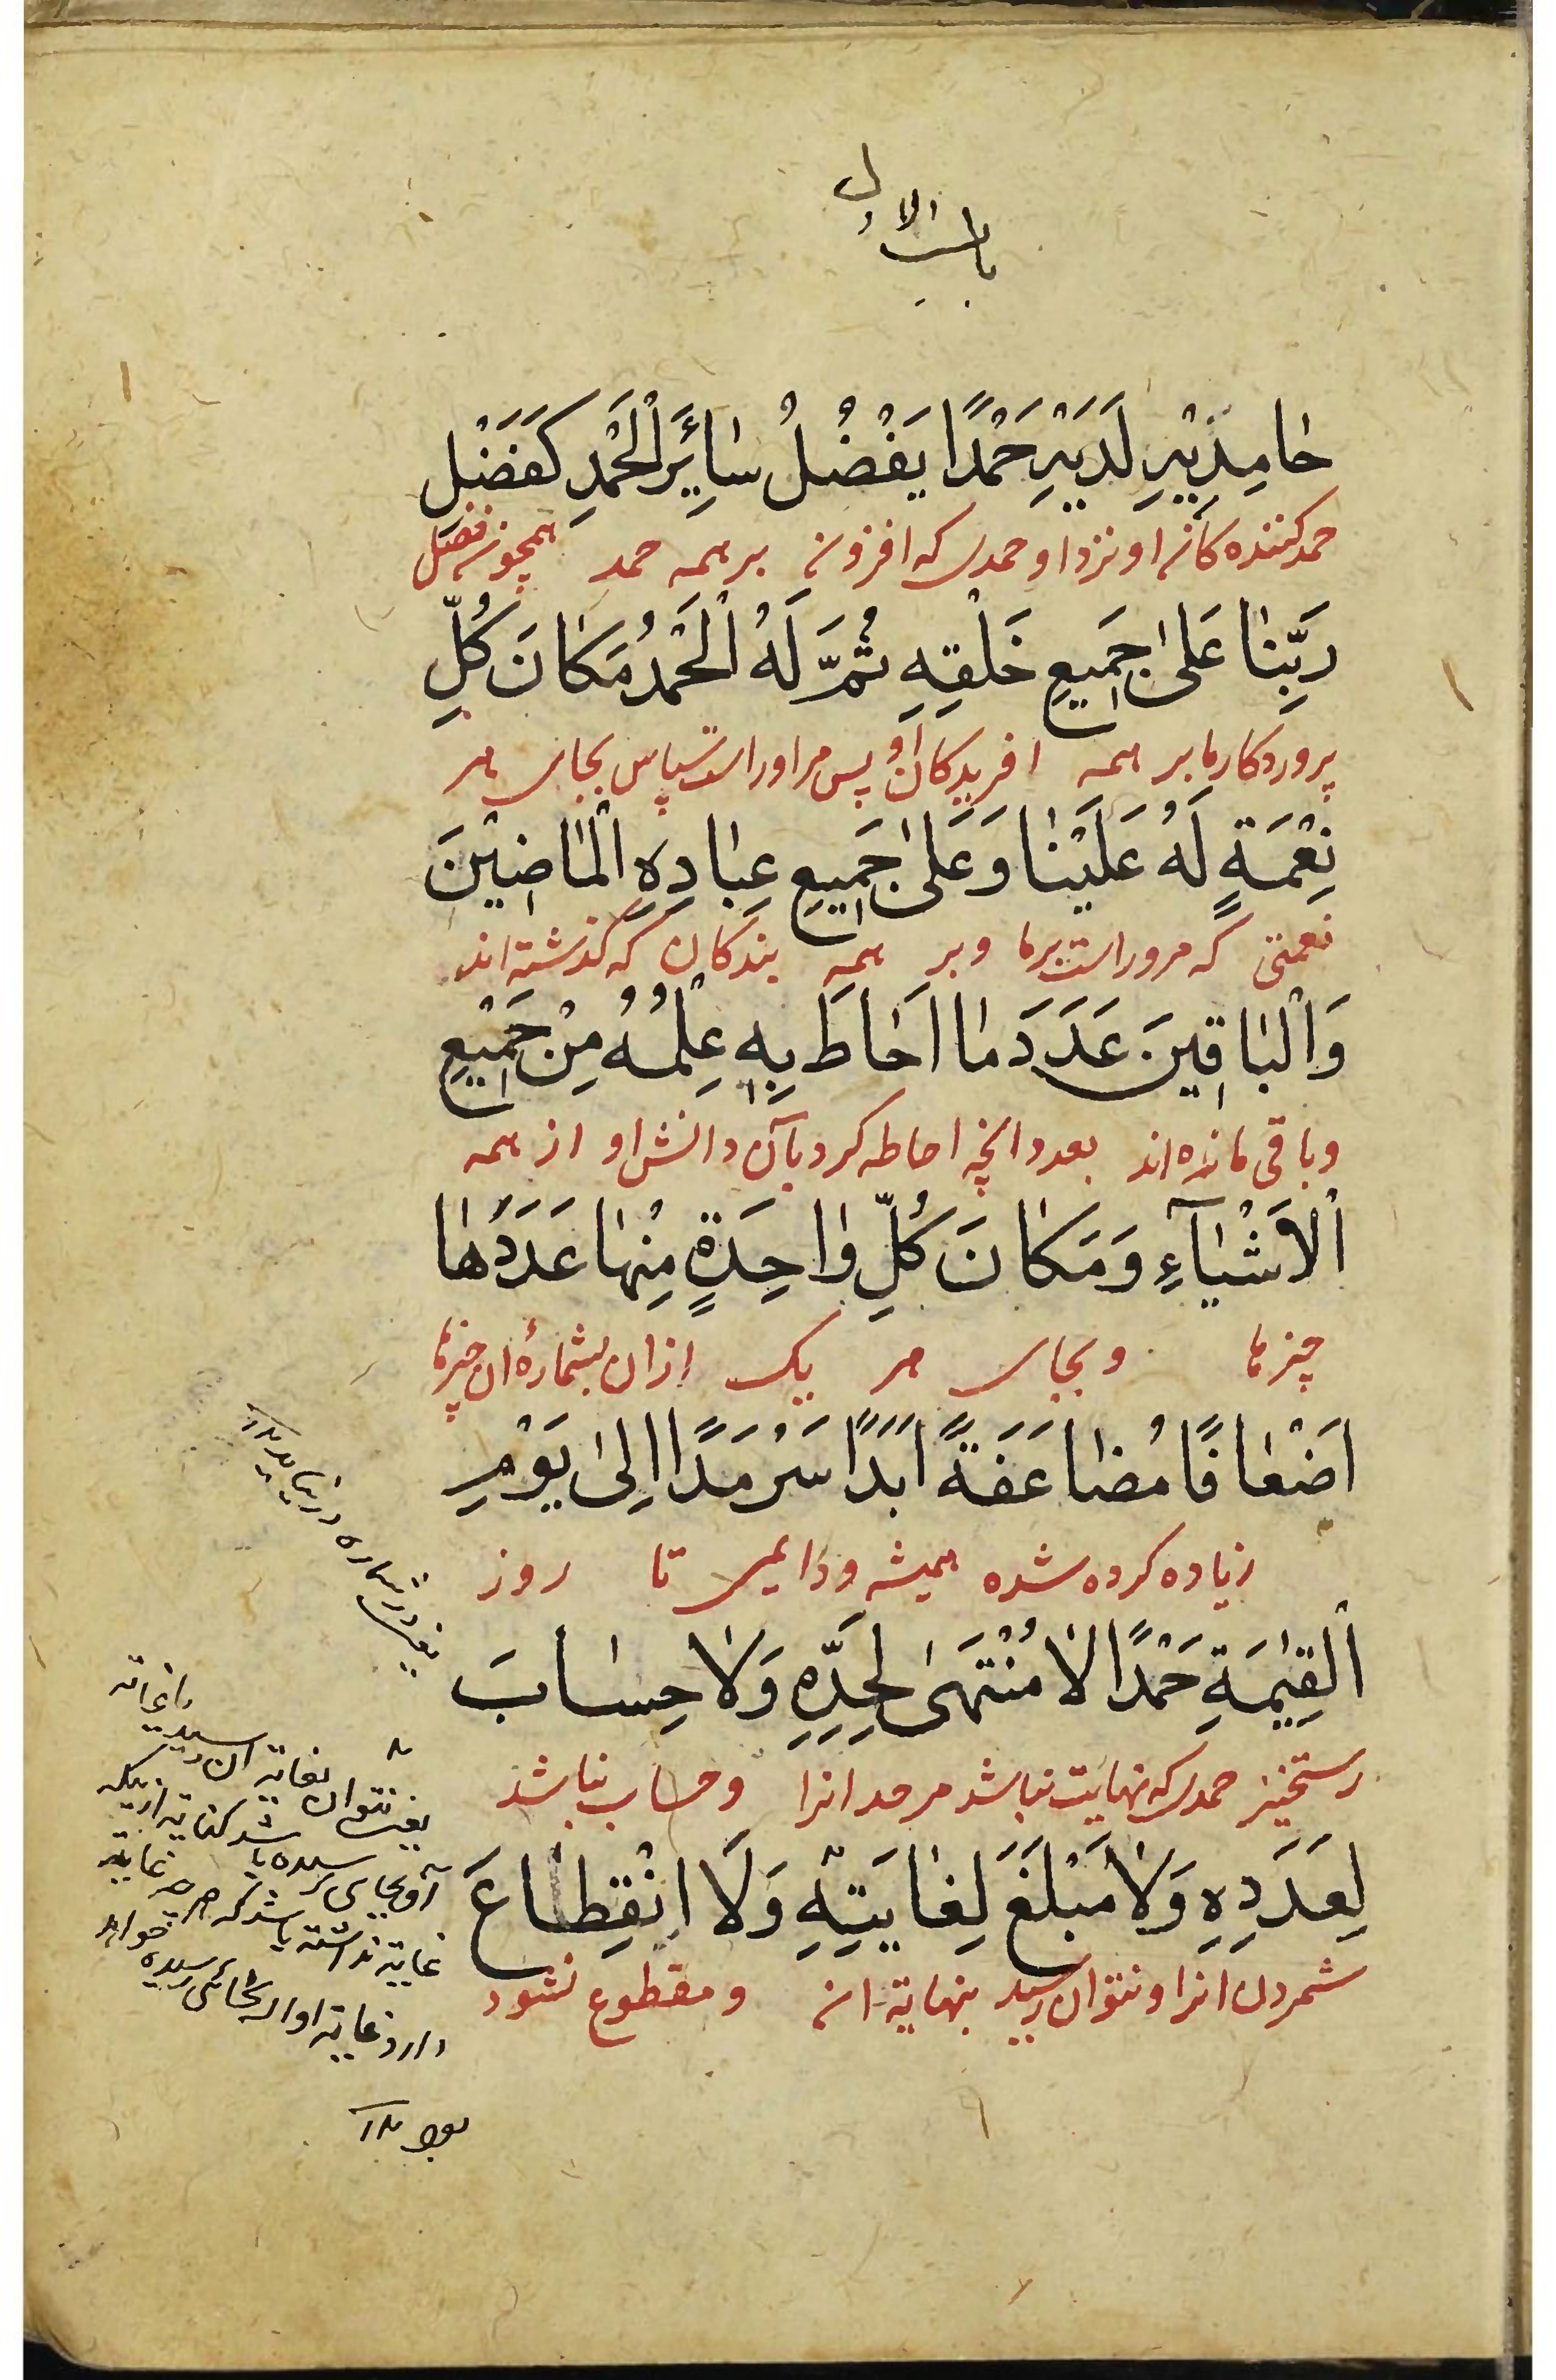 باب الاول
حٰامِدِيْهِ لَدَيْهِ حَمْدًا يَفْضُلُ سٰائِرَ الْحَمْدِ كَفَضْلِ
حمد کننده کان او نزد او حمدی که افزون بر همه حمد همچون فضل
رَبِّنٰا عَلىٰ جَمِيعِ خَلْقِهِ ثُمَّ لَهُ الْحَمْدُ مَكٰانَ كُلِّ
پروردکار ما بر همه افریدکان او پس مر او راست سپاس بجای هر
نِعْمَةٍ لَهُ عَلَيْنٰا وَعَلىٰ جَمِيعِ عِبٰادِهِ الْمٰاضِيْنَ
نعمتی که مرور است برما و بر همه بندکان که کذشته اند
وَالْبٰاقِينَ عَدَدَ مٰا اَحٰاطَ بِهِ عِلْمُهُ مِنْ جَمِيْعِ
و باقی مانده اند بعدد انچه احاطه کرد بآن دانش او از همه
الْاَشْيٰآءِ وَمَكٰانَ كُلِّ وٰاحِدَةٍ مِنْهٰا عَدَدُهٰا
چیزها و بجای هر یک ازان بشمارهٔ ان چیزها
اَضْعٰافًا مُضٰاعَفَةً اَبَدًا سَرْمَدًا اِلىٰ يَوْمِ
زیاده کرده شده همیشه و دایمی تا روز
الْقِيٰمَةِ حَمْدًا لٰا مُنْتَهَىٰ لِحَدِّهِ وَلٰا حِسٰابَ
رستخیز حمدی که نهایت نباشد مر حد انرا و حساب نباشد
لِعَدَدِهِ وَلٰا مَبْلَغَ لِغٰايَتِهِ وَلَا انْقِطٰاعَ
شمردن انرا و نتوان رسید بنهایة ان و مقطوع نشود
یعنی نتوان بغایة ان رسید
غایة نداشته باشد که هر چه غایة
دارد غایة او را بجائی رسیده خواهد
بود